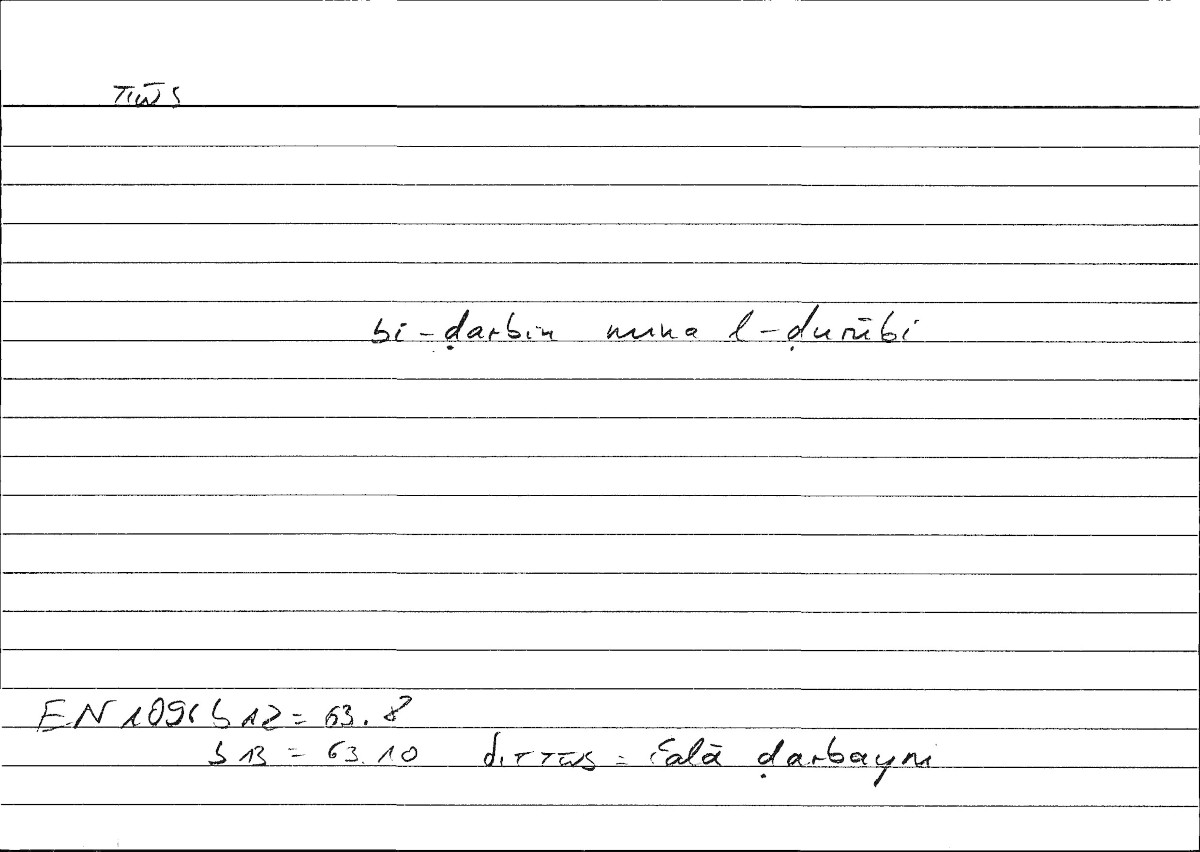 πῶς
bi-ḍarbin mina l-ḍurūbi
EN 1096 b 12 = 63.8
b 13 = 63.10 διττῶς = ʿalā ḍarbayni